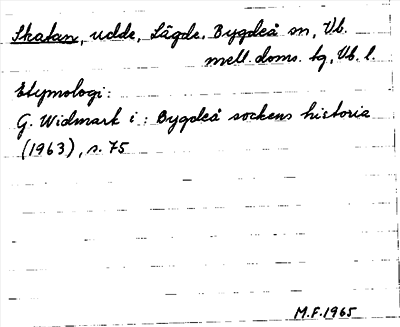 Skatan, udde, Sågde. Bygdeå sn, Vb.
mell. doms. tg, Vb. l.
Etymologi:
G. Widmark i: Bygdeå sockens historia
(1963), s. 75
M.F. 1965